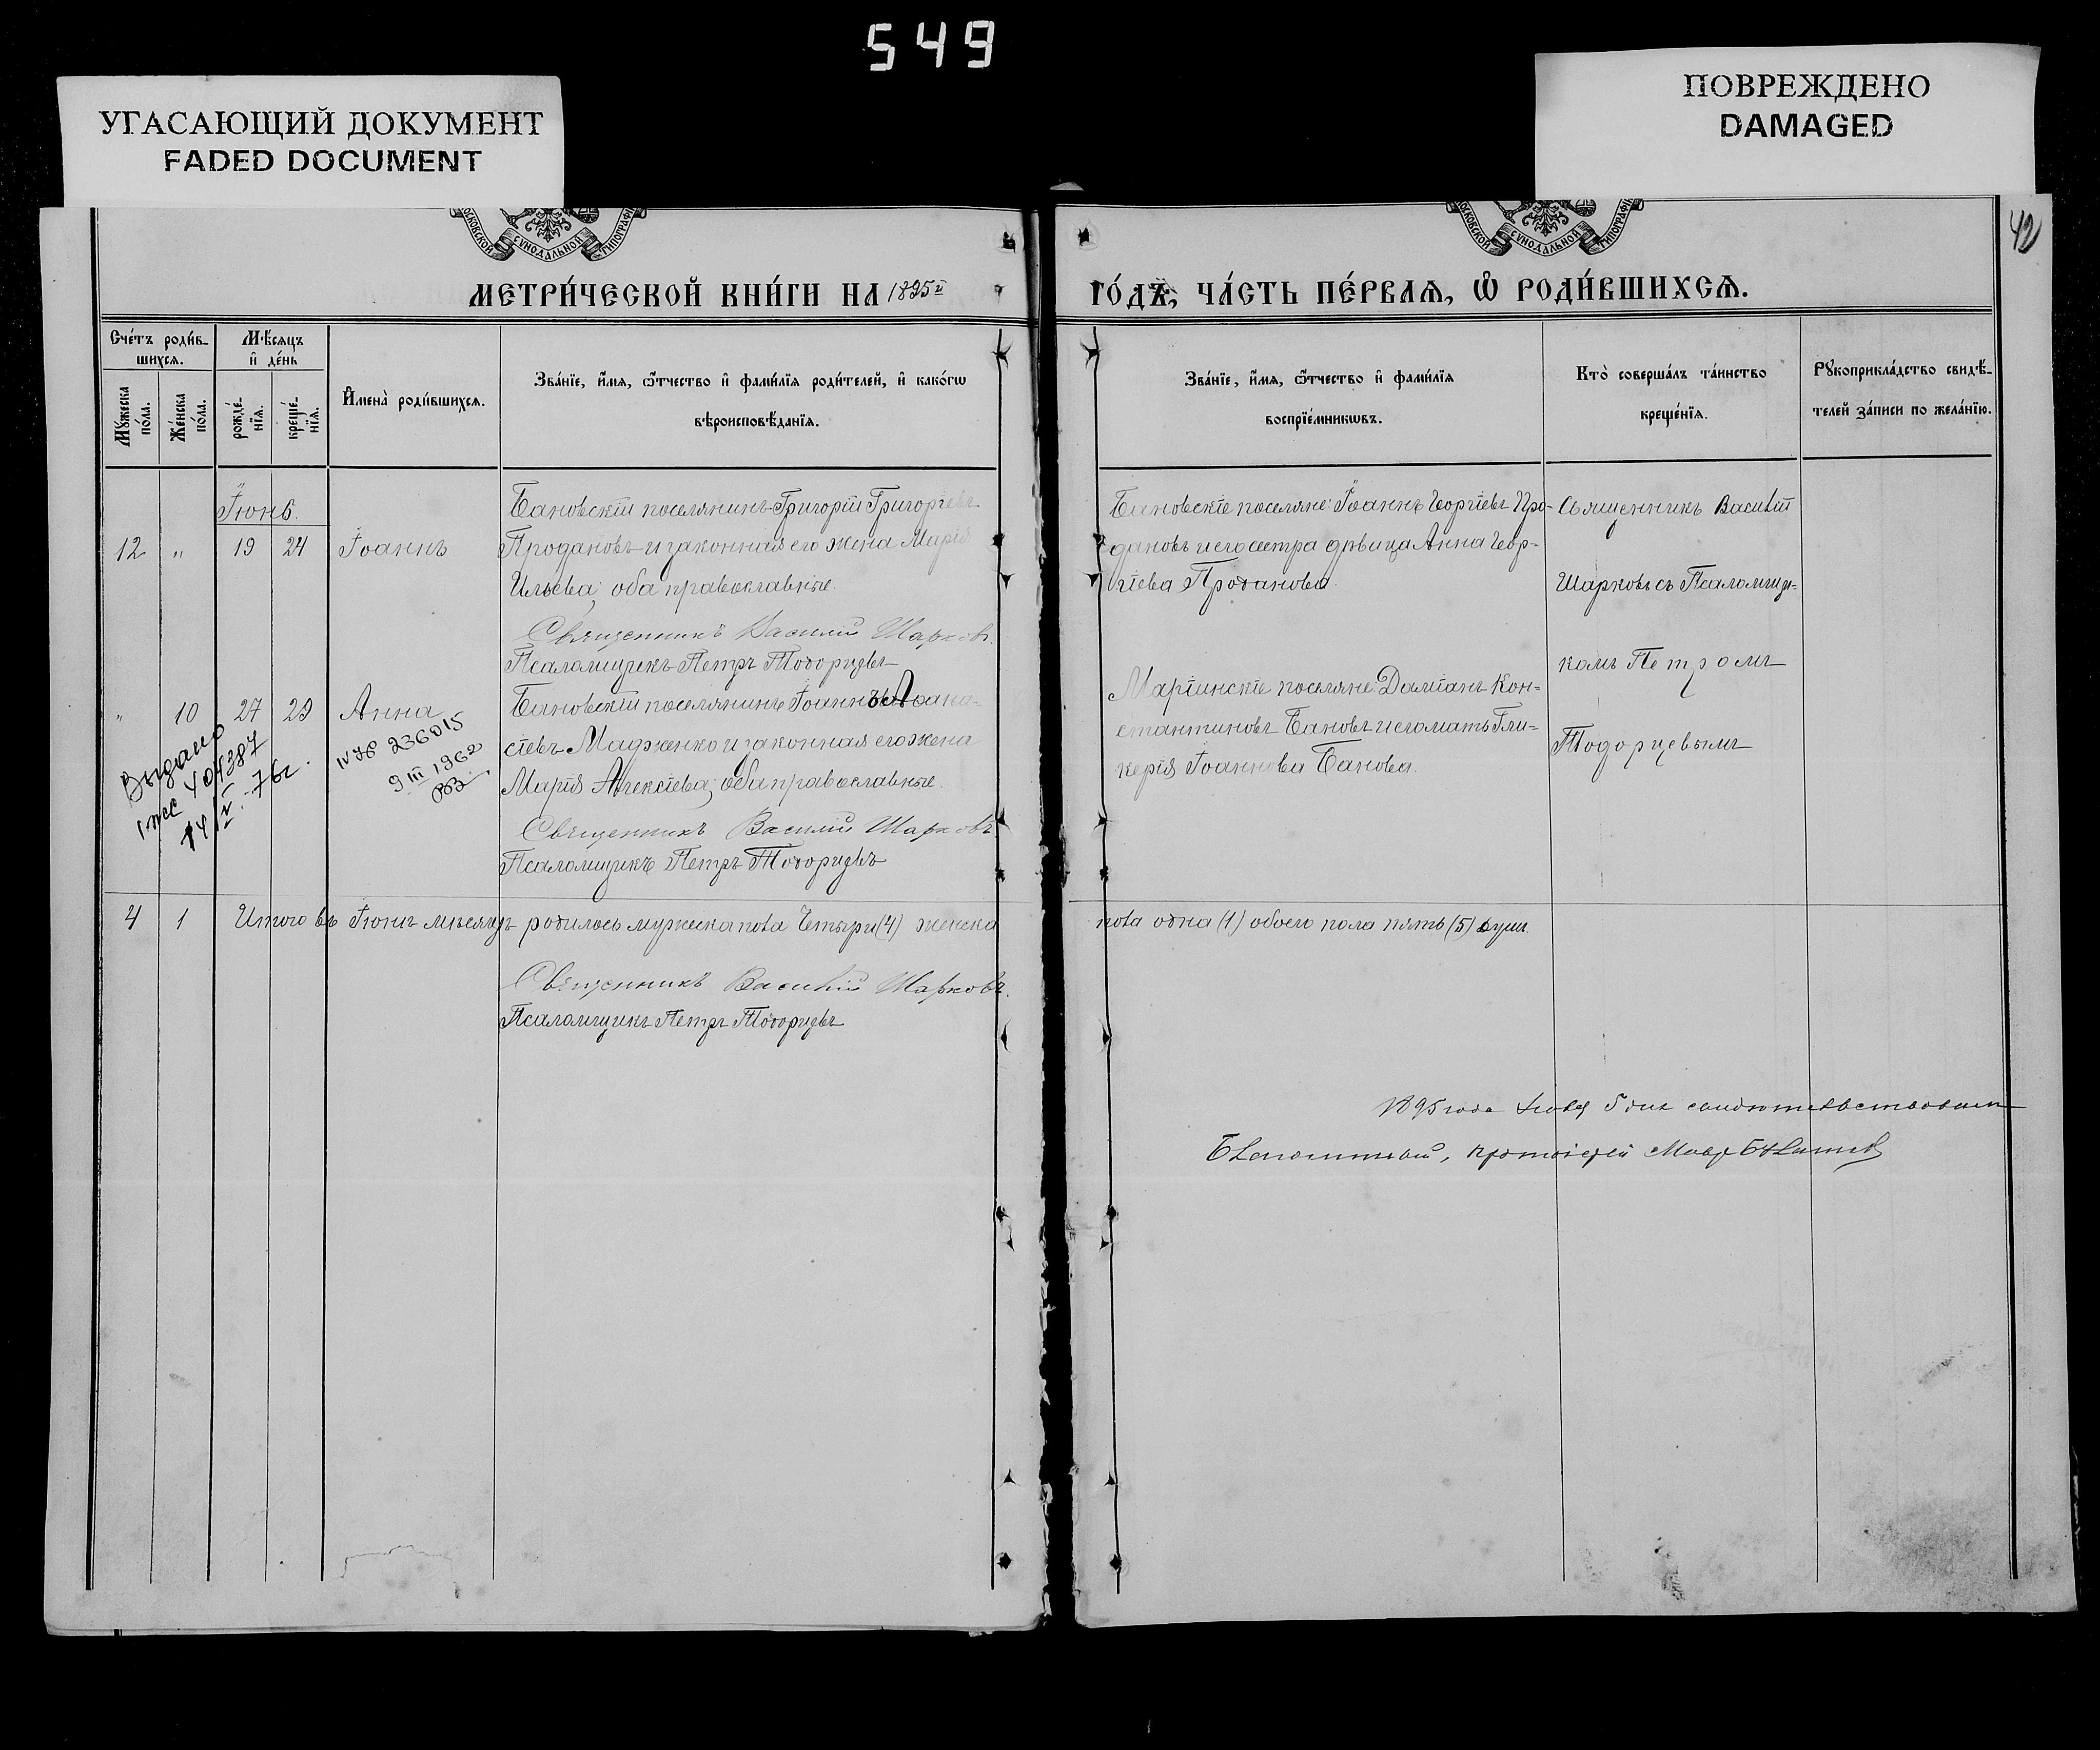 549
УГАСАЮЩИЙ ДОКУМЕНТ
FADED DOCUMENT
ПОВРЕЖДЕНО
DAMAGED
42
МОСКОВСКОЙ СѴНОДАЛЬНОЙ ТИПОГРАФІИ
МОСКОВСКОЙ СѴНОДАЛЬНОЙ ТИПОГРАФІИ
МЕТРИ́ЧЕСКОЙ КНИ́ГИ НА 1895й
ГО́ДЪ, ЧА́СТЬ ПЕ́РВАѦ, Ѡ РОДИ́ВШИХСѦ.
Сче́тъ роди́в-
шихсѧ.
Мѣ́сѧцъ
и҆ де́нь
Мꙋ́жеска
по́ла.
Же́нска
по́ла.
рожде́-
нїѧ.
креще́-
нїѧ.
И҆мена̀ роди́вшихсѧ.
Зва́нїе, и҆́мѧ, ѻ҆́тчество и҆ фами́лїѧ роди́телей, и҆ како́гѡ
вѣроисповѣ́данїѧ.
Зва́нїе, и҆́мѧ, ѻ҆́тчество и҆ фами́лїѧ
воспрїе́мникѡвъ.
Кто̀ соверша́лъ та́инство
креще́нїѧ.
Рꙋкоприкла́дство свидѣ́-
телей за́писи по жела́нїю.
Іюнь.
12 " 19 24 Іоаннъ
Бановскій поселянинъ Григорій Григорьевъ
Продановъ и законная его жена Марія
Ильева, оба православные.
Священникъ Василій Шарковъ.
Псаломщикъ Петръ Тодорцевъ
Бановскіе поселяне: Іоаннъ Георгіевъ Про-
дановъ и его сестра дѣвица Анна Геор-
гіева Проданова.
Священникъ Василій
Шарковъ съ Псаломщи-
комъ Петромъ
Тодорцевымъ
" 10 27 29 Анна
Бановскій поселянинъ Іоаннъ Аѳана-
сіевъ Мадженко и законная его жена
Марія Алексіева, оба православные.
Священникъ Василій Шарковъ
Псаломщикъ Петръ Тодорцевъ
Маріинскіе поселяне: Даміанъ Кон-
стантиновъ Бановъ и его мать Гли-
керія Іоаннова Банова.
Выдано
404387
14 V. 76г.
IV ЯР 236015
9 III 1962
4 1 Итого въ Іюнѣ мѣсяцѣ родилось мужеска пола Четыри (4) женска
пола одна (1) обоего пола пять (5) душъ.
Священникъ Василій Шарковъ.
Псаломщикъ Петръ Тодорцевъ
1895 года Іюля 5 дня свидѣтельствовалъ
Благочинный, протоіерей